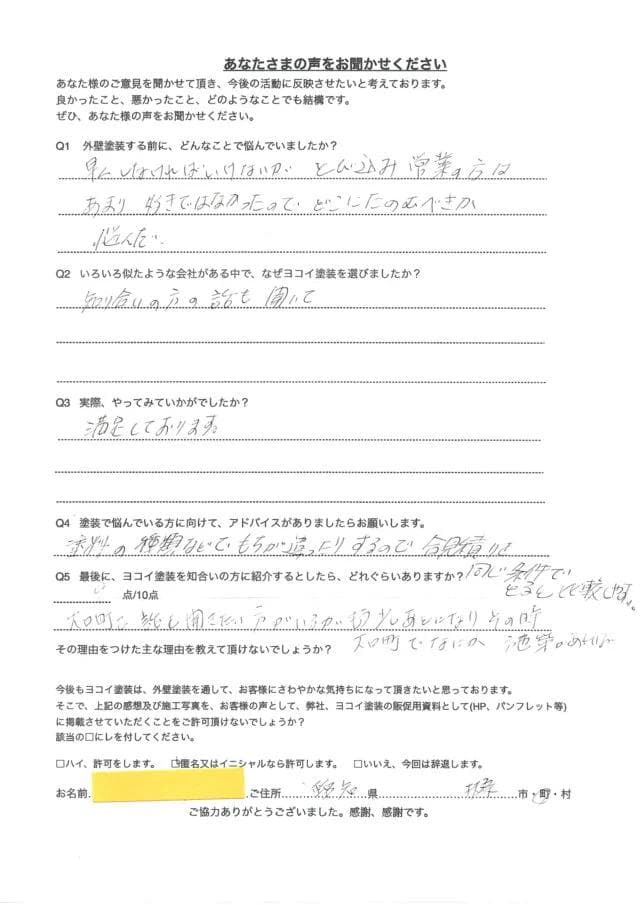 あなたさまの声をお聞かせください
あなた様のご意見を聞かせて頂き、今後の活動に反映させたいと考えております。
良かったこと、悪かったこと、どのようなことでも結構です。
ぜひ、あなた様の声をお聞かせください。
Q1 外壁塗装する前に、どんなことで悩んでいましたか？
早くしなければいけないが とび込み営業の方は
あまり好きではなかったので どこにたのむべきか
悩んだ。
Q2 いろいろ似たような会社がある中で、なぜヨコイ塗装を選びましたか？
知り合いの方の話も聞いて
Q3 実際、やってみていかがでしたか？
満足しております。
Q4 塗装で悩んでいる方に向けて、アドバイスがありましたらお願いします。
塗料の種類などでもちが違ったりするので 合見積りは
同じ条件で
とるとと比較しやすい。
Q5 最後に、ヨコイ塗装を知合いの方に紹介するとしたら、どれぐらいありますか？
点/10点
大口町に 話も聞きたい方がいるがもう少しあとになり その時
その理由をつけた主な理由を教えて頂けないでしょうか？
大口町でなにか
今後もヨコイ塗装は、外壁塗装を通して、お客様にさわやかな気持ちになって頂きたいと思っております。
そこで、上記の感想及び施工写真を、お客様の声として、弊社、ヨコイ塗装の販促用資料として(HP、パンフレット等)
に掲載させていただくことをご許可頂けないでしょうか？
該当の□にレを付してください。
□ハイ、許可をします。 ☑匿名又はイニシャルなら許可します。 □いいえ、今回は辞退します。
お名前 ご住所 愛知 県 市・町・村
ご協力ありがとうございました。感謝、感謝です。